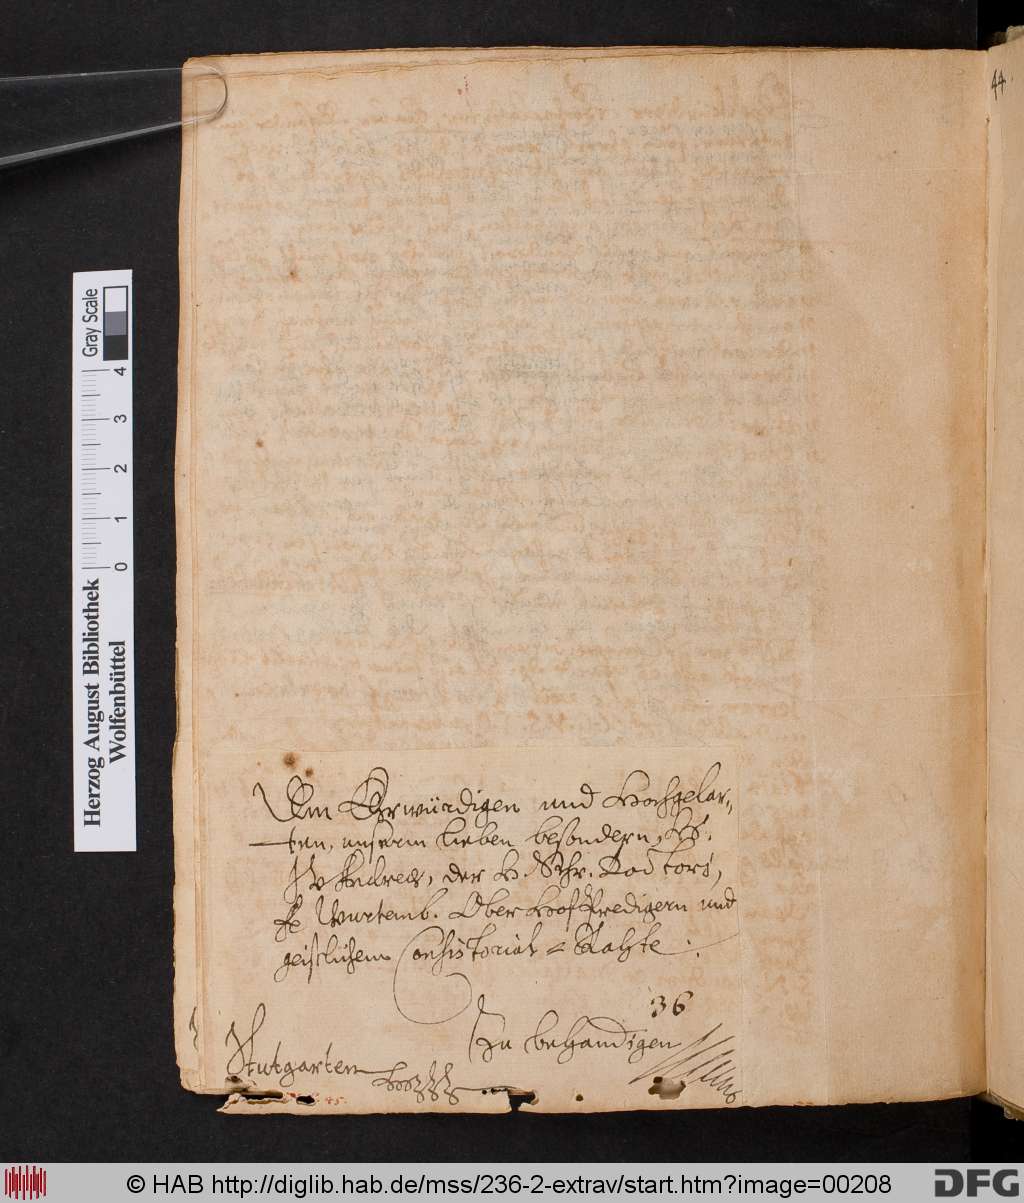 44.
Dem Ehrwürdigen und Hochgelar-
ten, unserm lieben besondern, H.
Andreæ, der H. Schr. Doctori,
Wurtemb. Ober Hof Predigern und
geistlichem Consistorial = Rahte.
36
Zu behandigen
Stutgarten
Gray Scale
0 1 2 3 4
Herzog August Bibliothek
Wolfenbüttel
© HAB http://diglib.hab.de/mss/236-2-extrav/start.htm?image=00208
DFG